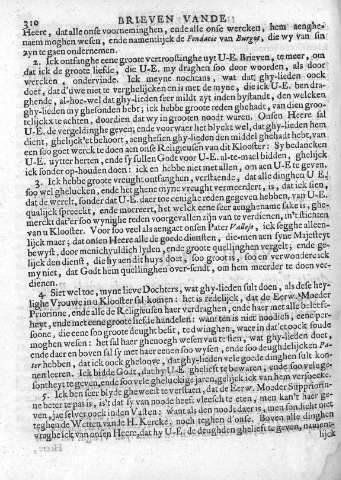 310 BRIEVEN VANDE
Heere, dat alle onse voorneminghen, ende alle onse wercken, hem aenghe-
naem moghen wesen, ende namentlijck de Fondatie van Burgos, die wy van sin
zyn te gaen ondernemen.
2. Ick ontfanghe eene groote vertroostinghe uyt U-E. Brieven, te meer, om
dat ick de groote liefde, die U-E. my draghen soo door woorden, als door
wercken, ondervinde. Ick meyne nochtans, wat dat ghy-lieden oock
doet, dat d'uwe niet te verghelijcken en is met de myne, die ick U-E. ben dra-
ghende, al-hoe-wel dat ghy-lieden seer mildt zyt inden bystandt, den welcken
ghy-lieden my ghesonden hebt; ick hebbe groote reden ghehadt, van dien groo-
telijckx te achten, doordien dat wy in grooten noodt waren. Onsen Heere sal
U-E. de vergeldinghe geven; ende voorwaer het blyckt wel, dat ghy-lieden hem
dient, ghelijck't behoort, aenghesien ghy-lieden den middel ghehadt hebt, van
een soo goet werck te doen aen onse Religieusen van dit Klooster: Sy bedancken
U-E. uytter herten, ende sy sullen Godt voor U-E. al-te-mael bidden, ghelijck
ick sonder op-houden doen: ick en hebbe niet met allen, om aen U-E. te geven.
3. Ick hebbe groote vreught ontfanghen, verstaende, dat alle dinghen U-E.
soo wel ghelucken, ende het ghene myne vreught vermeerdert, is, dat ick sien,
dat de werelt, sonder dat U-E. daer toe eenighe reden gegeven hebben, van U-E.
qualijck spreeckt, ende murreert, het welck eene seer aenghename sake is, ghe-
merckt dat'er soo wynighe reden voorgevallen zijn van te verdienen, in't stichten
van u Klooster. Voor soo veel als aengaet onsen Pater Vallejo, ick segghe alleen-
lijck maer; dat onsen Heere alle de goede diensten, die-men aen syne Majesteyt
bewyst, door menichvuldich lyden, ende groote quellinghen vergelt; ende ge-
lijck den dienst, die hy aen dit huys doet, soo groot is, soo en verwondere ick
my niet, dat Godt hem quellinghen over-sendt, om hem meerder te doen ver-
dienen.
4. Siet wel toe, myne lieve Dochters, wat ghy-lieden sult doen, als dese hey-
lighe Vrouwe in u Klooster sal komen: het is redelijck, dat de Eerw. Moeder
Priorinne, ende alle de Religieusen haer verdraghen, ende haer met alle beleeft-
heyt, ende met eene groote liefde handelen: want ten is niet noodich, eene per-
soone, die eene soo groote deught besit, te dwinghen, waer in dat et oock soude
moghen wesen: het sal haer ghenoegh wesen van te sien, wat ghy-lieden doet,
ende daer en boven sal sy met haer eenen soo wysen, ende soo deughdelijcken Pa-
ter hebben, dat ick oock gheloove, dat ghy-lieden vele goede dinghen sult kon-
nen leeren. Ick bidde Godt, dat hy U-E. ghelieft te bewaren, ende soo vele ge-
sontheyt te geven, ende soo vele gheluckige jaren, gelijck ick van hem versoecke.
5. Ick ben seer blyde gheweest te verstaen, dat de Eerw. Moeder Suppriorin-
ne beter te pas is, is't dat sy van noode heeft vleesch te eten, men kan't haer ge-
ven, jae selver oock inden Vasten: want als den noodt daer is, men sondight niet
teghen de Wetten van de H. Kercke, noch teghen d'onse. Boven alle dinghen
vraghe ick van onsen Heere, dat hy U-E. de deughden ghelieft te geven, nament-
lijck